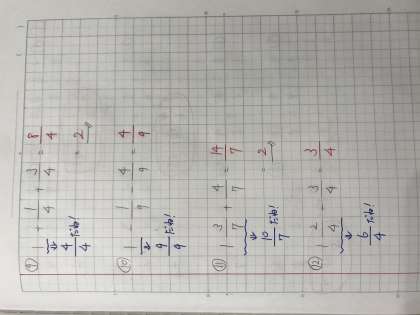 ⑨ 1 + 1/4 + 3/4 = 8/4
4/4 = 2
⑩ 1 - 1/9 - 4/9 = 4/9
9/9
⑪ 1 3/7 + 4/7 = 14/7
10/7 = 2
⑫ 1 2/4 - 3/4 = 3/4
6/4